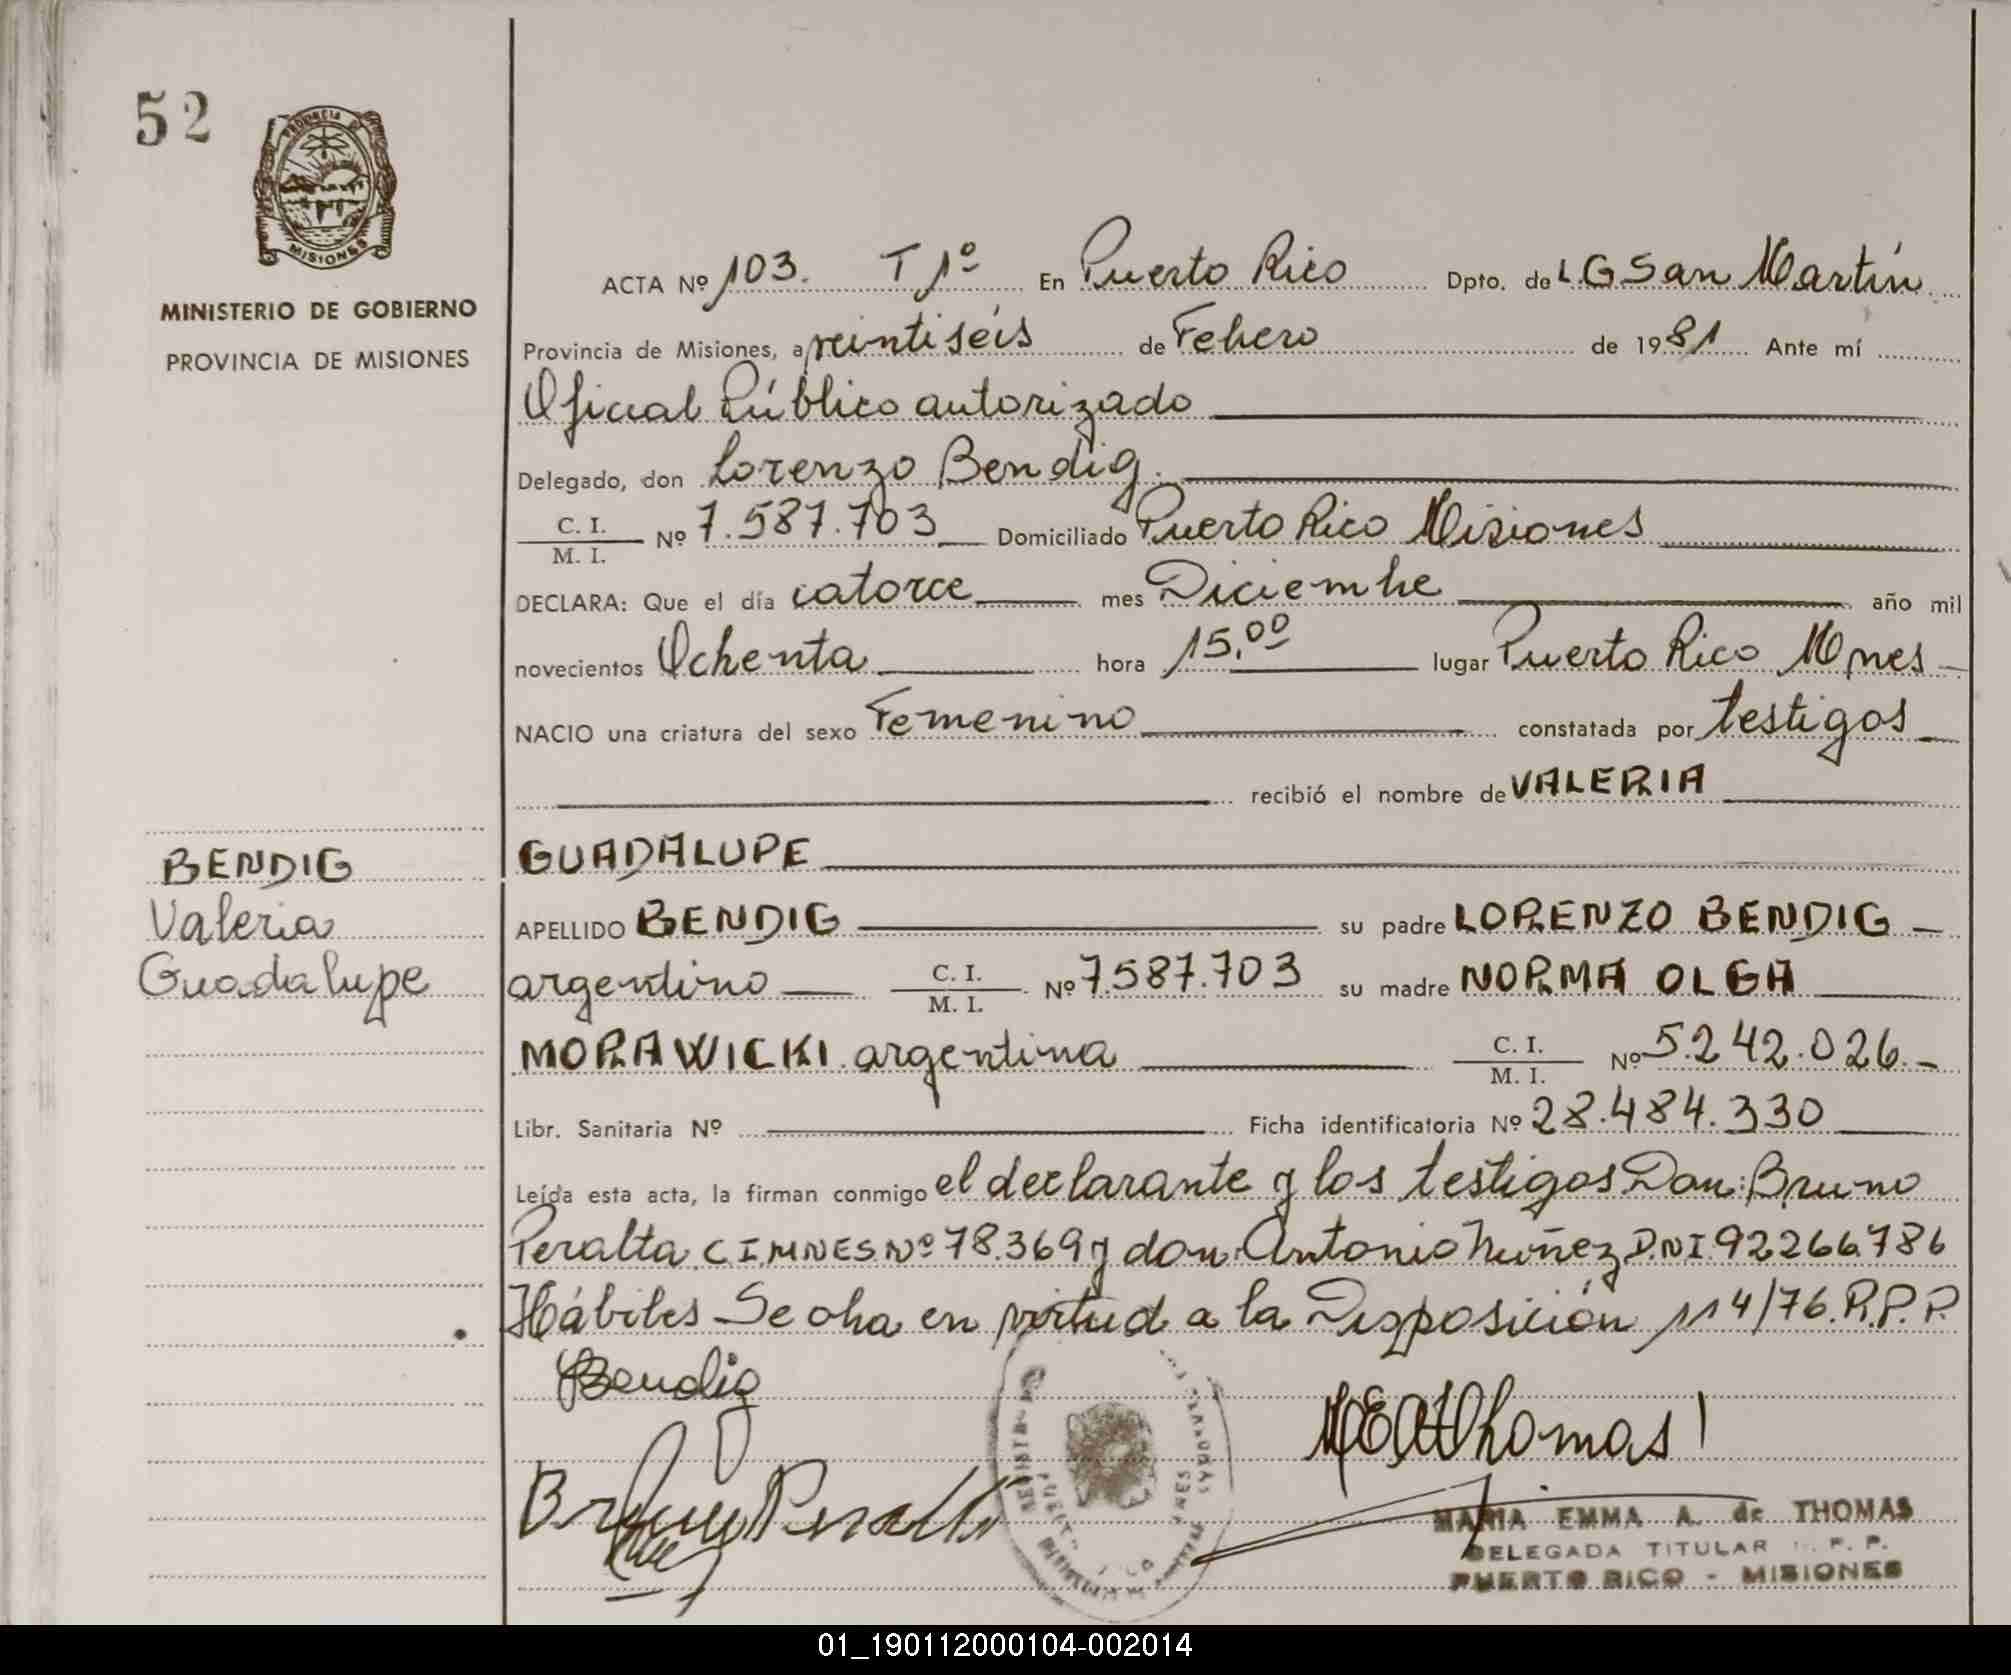 52
PROVINCIA DE
MISIONES
MINISTERIO DE GOBIERNO
PROVINCIA DE MISIONES
ACTA Nº 103. T 1º En Puerto Rico Dpto. de L.G San Martín
Provincia de Misiones, a veintiséis de Febrero de 1981 Ante mí
Oficial Público autorizado
Delegado, don Lorenzo Bendig.
C. I.
M. I.
Nº 7.587.703 Domiciliado Puerto Rico Misiones
DECLARA: Que el día catorce mes Diciembre año mil
novecientos Ochenta hora 15,00 lugar Puerto Rico Mnes
NACIO una criatura del sexo Femenino constatada por testigos
recibió el nombre de VALERIA
GUADALUPE
APELLIDO BENDIG su padre LORENZO BENDIG
argentino C. I. / M. I. Nº 7.587.703 su madre NORMA OLGA
MORAWICKI argentina C. I. / M. I. Nº 5.242.026.
Libr. Sanitaria Nº Ficha identificatoria Nº 28.484.330
Leída esta acta, la firman conmigo el declarante y los testigos Don: Bruno
Peralta C.I. MNES. Nº 78.369 y don: Antonio Nuñez D.N.I. 92266.786
Hábiles Se obra en virtud a la Disposición 114/76. R.P.P.
BENDIG
Valeria
Guadalupe
Bendig
MEAThomas
Peralta
MARIA EMMA A. de THOMAS
DELEGADA TITULAR R. P. P.
PUERTO RICO - MISIONES
01_190112000104-002014